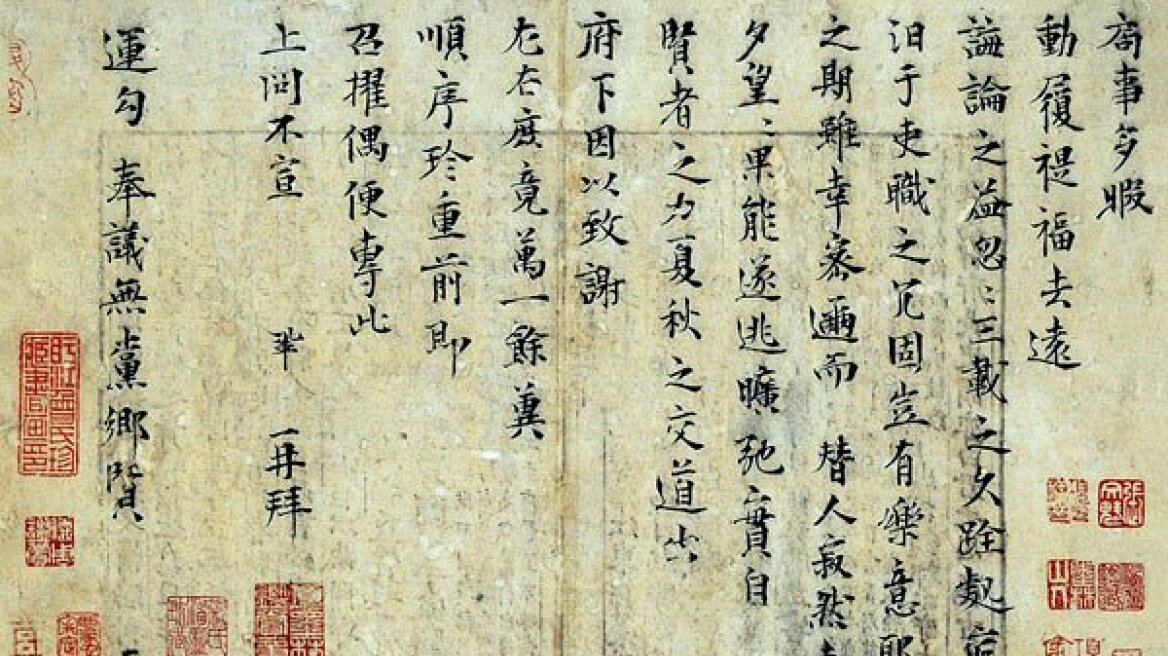 局事多暇
動履禔福去遠
誨論之益忽〻三載之久跧處
汩于吏職之冗固豈有樂意耶
之期雖幸密邇而 替人寂然
夕望〻果能遂逃曠弛實自
賢者之力夏秋之交道出
府下因以致謝
左右庶竟萬一餘冀
順序珍重前即
召擢偶便專此
上問不宣 鞏 再拜
運勾 奉議無黨鄉賢